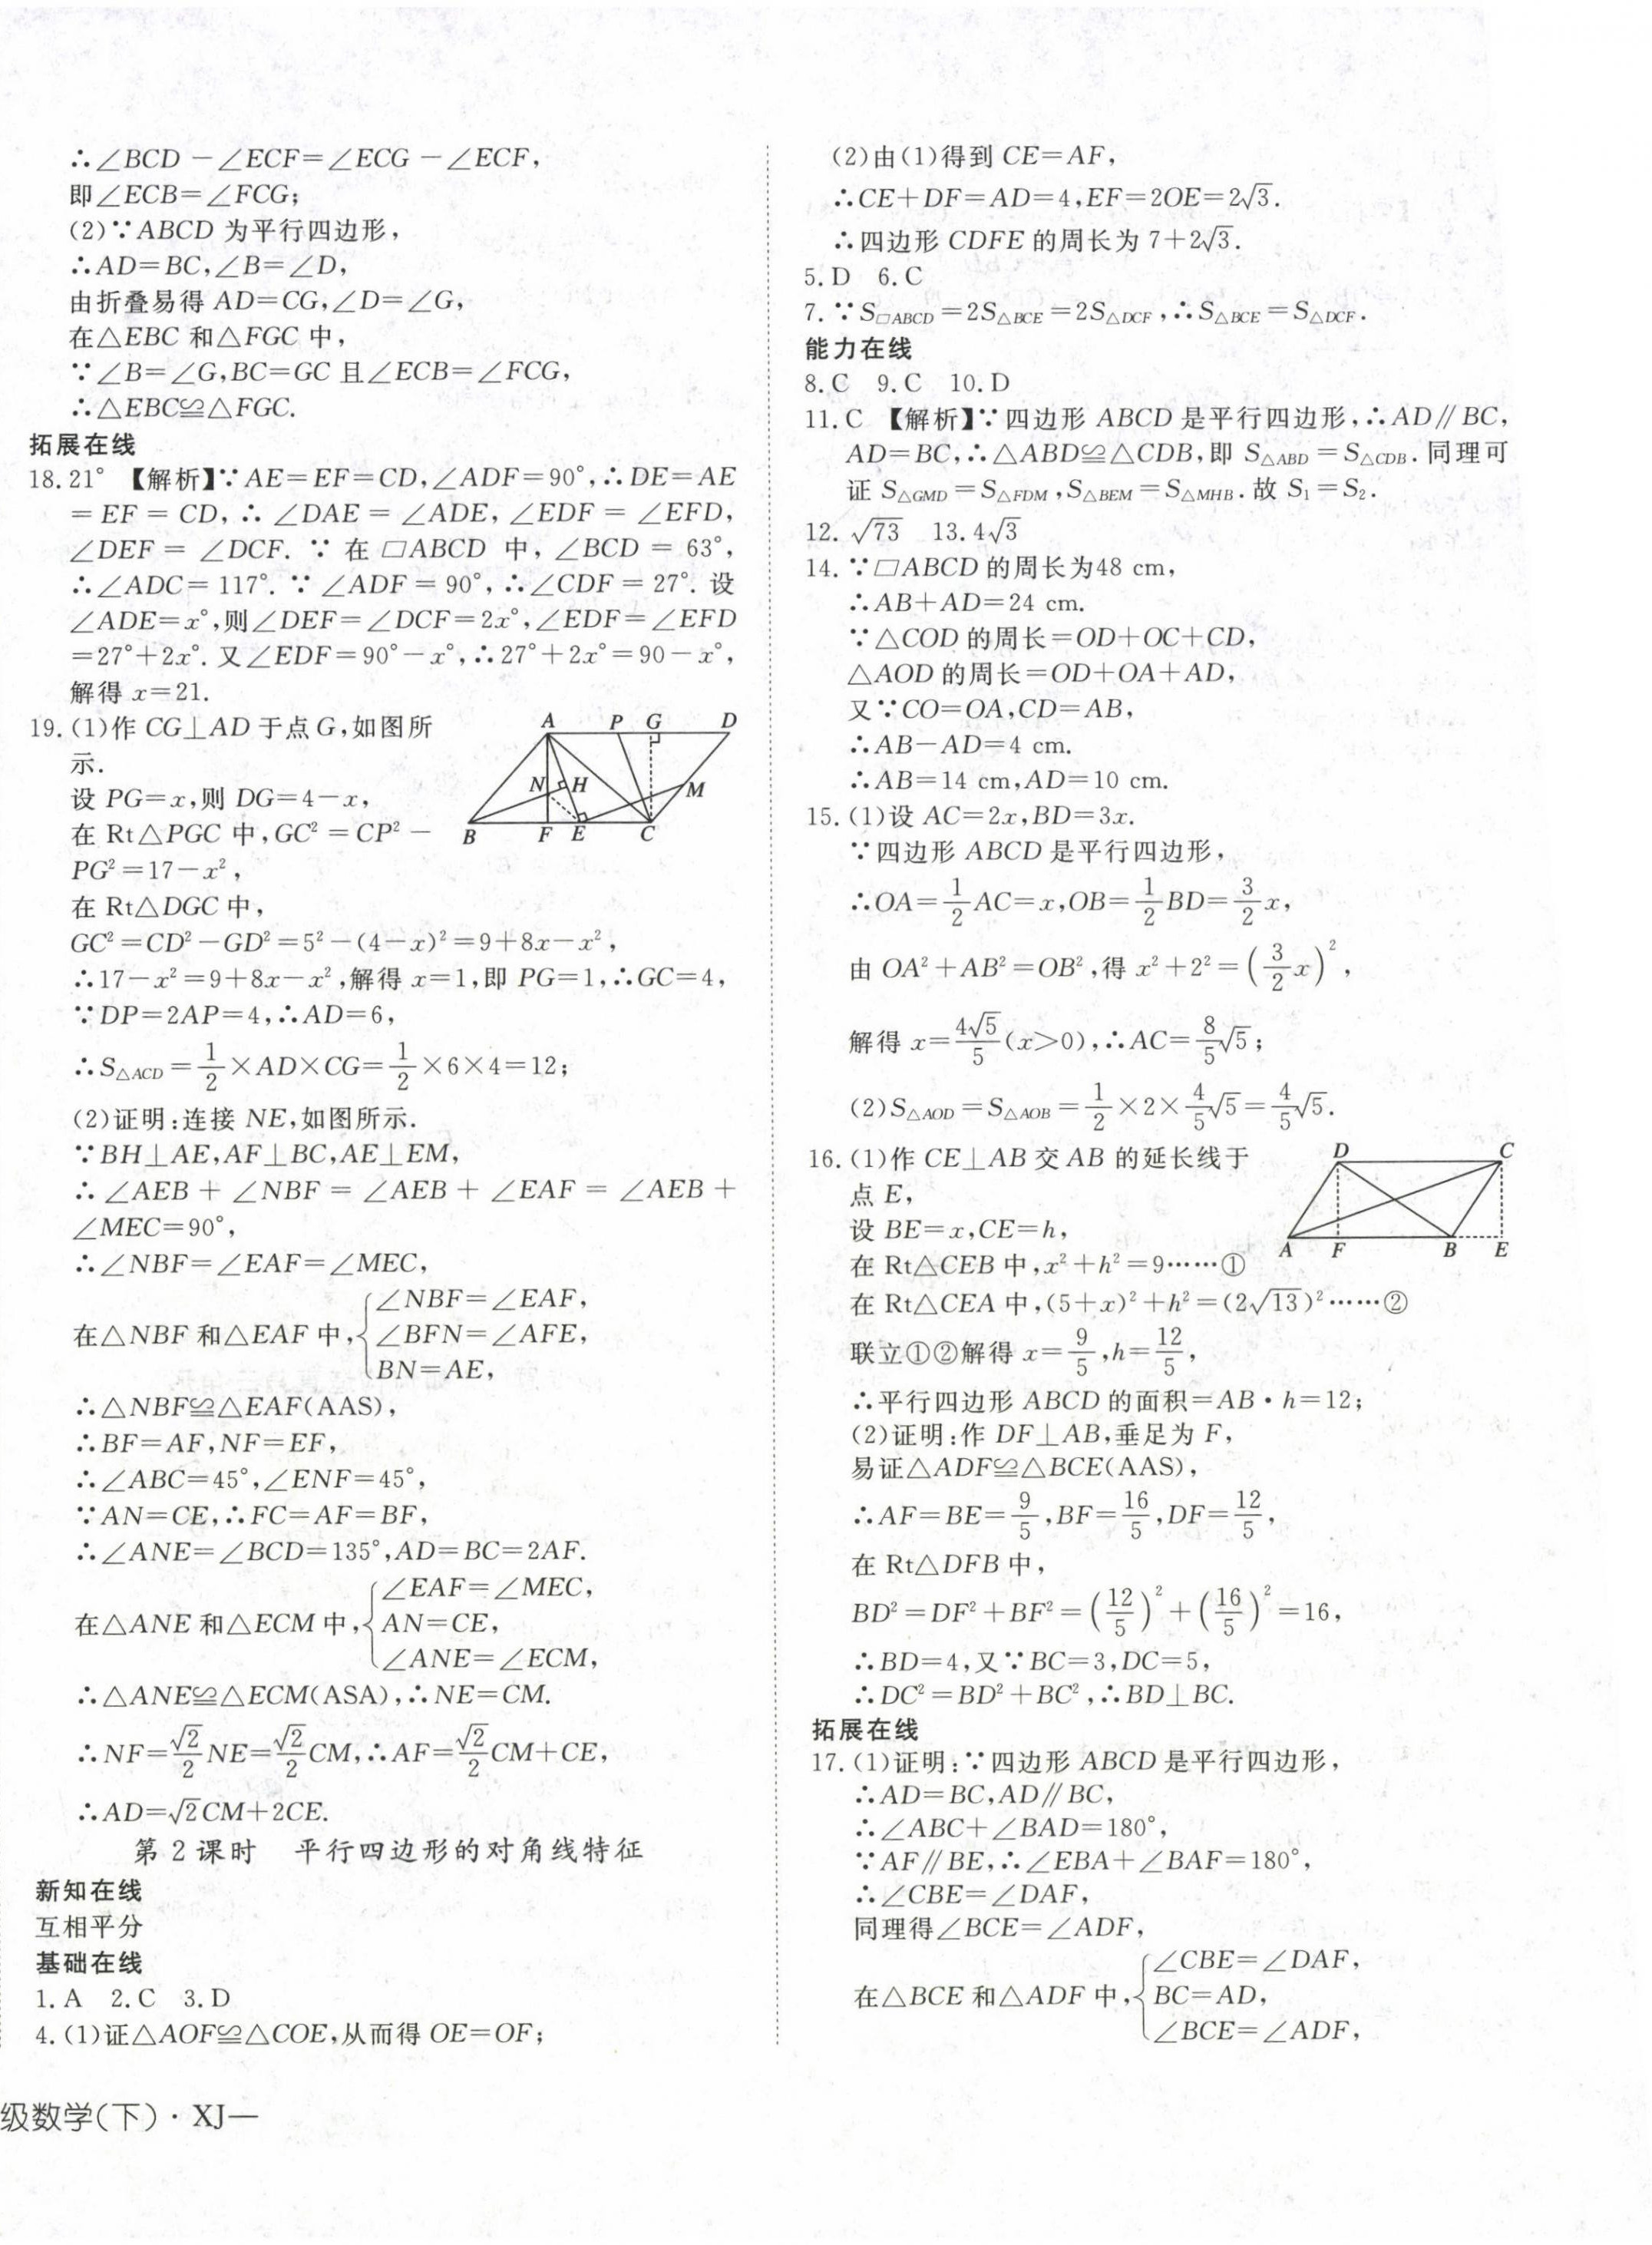 ∴∠BCD－∠ECF=∠ECG－∠ECF,
即∠ECB=∠FCG;
(2)∵ABCD 为平行四边形,
∴AD=BC,∠B=∠D,
由折叠易得 AD=CG,∠D=∠G,
在△EBC 和△FGC 中,
∵∠B=∠G,BC=GC 且∠ECB=∠FCG,
∴△EBC≌△FGC.
拓展在线
18. 21° 【解析】∵AE=EF=CD,∠ADF=90°,∴DE=AE
=EF=CD,∴∠DAE=∠ADE,∠EDF=∠EFD,
∠DEF=∠DCF. ∵在▱ABCD 中,∠BCD=63°,
∴∠ADC=117°. ∵∠ADF=90°,∴∠CDF=27°. 设
∠ADE=x°,则∠DEF=∠DCF=2x°,∠EDF=∠EFD
=27°+2x°. 又∠EDF=90°－x°,∴27°+2x°=90－x°,
解得 x=21.
19. (1)作 CG⊥AD 于点 G,如图所
示.
设 PG=x,则 DG=4－x,
在 Rt△PGC 中,GC²=CP²－
PG²=17－x²,
A P G D
N H M
B F E C
在 Rt△DGC 中,
GC²=CD²－GD²=5²－(4－x)²=9+8x－x²,
∴17－x²=9+8x－x²,解得 x=1,即 PG=1,∴GC=4,
∵DP=2AP=4,∴AD=6,
∴S△ACD=1/2×AD×CG=1/2×6×4=12;
(2)证明:连接 NE,如图所示.
∵BH⊥AE,AF⊥BC,AE⊥EM,
∴∠AEB+∠NBF=∠AEB+∠EAF=∠AEB+
∠MEC=90°,
∴∠NBF=∠EAF=∠MEC,
在△NBF 和△EAF 中,{∠NBF=∠EAF,
∠BFN=∠AFE,
BN=AE,
∴△NBF≌△EAF(AAS),
∴BF=AF,NF=EF,
∴∠ABC=45°,∠ENF=45°,
∵AN=CE,∴FC=AF=BF,
∴∠ANE=∠BCD=135°,AD=BC=2AF.
在△ANE 和△ECM 中,{∠EAF=∠MEC,
AN=CE,
∠ANE=∠ECM,
∴△ANE≌△ECM(ASA),∴NE=CM.
∴NF=√2/2NE=√2/2CM,∴AF=√2/2CM+CE,
∴AD=√2CM+2CE.
第 2 课时 平行四边形的对角线特征
新知在线
互相平分
基础在线
1. A 2. C 3. D
4. (1)证△AOF≌△COE,从而得 OE=OF;
(2)由(1)得到 CE=AF,
∴CE+DF=AD=4,EF=2OE=2√3.
∴四边形 CDFE 的周长为 7+2√3.
5. D 6. C
7. ∵S▱ABCD=2S△BCE=2S△DCF,∴S△BCE=S△DCF.
能力在线
8. C 9. C 10. D
11. C 【解析】∵四边形 ABCD 是平行四边形,∴AD∥BC,
AD=BC,∴△ABD≌△CDB,即 S△ABD=S△CDB. 同理可
证 S△GMD=S△FDM,S△BEM=S△MHB. 故 S₁=S₂.
12. √73 13. 4√3
14. ∵▱ABCD 的周长为48 cm,
∴AB+AD=24 cm.
∵△COD 的周长=OD+OC+CD,
△AOD 的周长=OD+OA+AD,
又∵CO=OA,CD=AB,
∴AB－AD=4 cm.
∴AB=14 cm,AD=10 cm.
15. (1)设 AC=2x,BD=3x.
∵四边形 ABCD 是平行四边形,
∴OA=1/2AC=x,OB=1/2BD=3/2x,
由 OA²+AB²=OB²,得 x²+2²=(3/2x)²,
解得 x=4√5/5(x>0),∴AC=8/5√5;
(2)S△AOD=S△AOB=1/2×2×4/5√5=4/5√5.
16. (1)作 CE⊥AB 交 AB 的延长线于
点 E,
设 BE=x,CE=h,
D C
A F B E
在 Rt△CEB 中,x²+h²=9……①
在 Rt△CEA 中,(5+x)²+h²=(2√13)²……②
联立①②解得 x=9/5,h=12/5,
∴平行四边形 ABCD 的面积=AB·h=12;
(2)证明:作 DF⊥AB,垂足为 F,
易证△ADF≌△BCE(AAS),
∴AF=BE=9/5,BF=16/5,DF=12/5,
在 Rt△DFB 中,
BD²=DF²+BF²=(12/5)²+(16/5)²=16,
∴BD=4,又∵BC=3,DC=5,
∴DC²=BD²+BC²,∴BD⊥BC.
拓展在线
17. (1)证明:∵四边形 ABCD 是平行四边形,
∴AD=BC,AD∥BC,
∴∠ABC+∠BAD=180°,
∵AF∥BE,∴∠EBA+∠BAF=180°,
∴∠CBE=∠DAF,
同理得∠BCE=∠ADF,
在△BCE 和△ADF 中,{∠CBE=∠DAF,
BC=AD,
∠BCE=∠ADF,
级数学(下)·XJ—